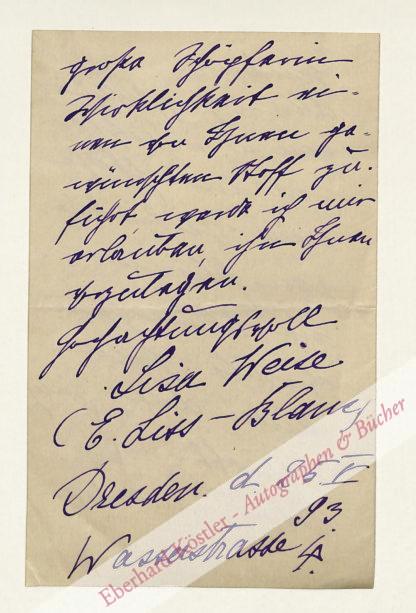 große Schöpferin
Wirklichkeit ei-
nen von Ihnen ge-
wünschten Stoff zu-
führt, werde ich mir
erlauben, ihn Ihnen
vorzulegen.
Hochachtungsvoll
Lisa Weise
(E. Liss-Blanc)
Dresden. d. 25 V
93.
Wasserstrasse 4.
Eberhard Köstler - Autographen & Bücher